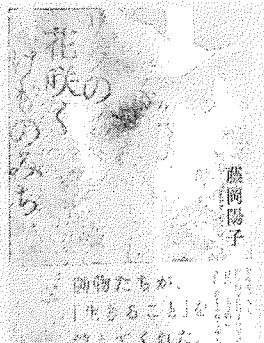 の
花咲く
けものみち
藤岡陽子
動物たちが、
「生きること」を
教えてくれた。